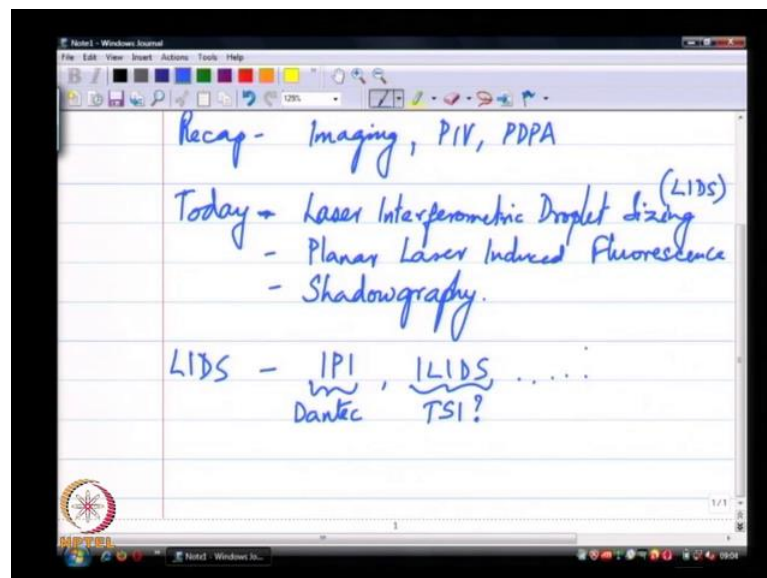 Note1 - Windows Journal
File Edit View Insert Actions Tools Help
B I
129%
Recap - Imaging, PIV, PDPA
(LIDS)
Today - Laser Interferometric Droplet Sizing
- Planar Laser Induced Fluorescence
- Shadowgraphy.
LIDS - IPI, ILIDS .....
Dantec TSI?
1/1
1
NPTEL
Note1 - Windows Jo...
09:04